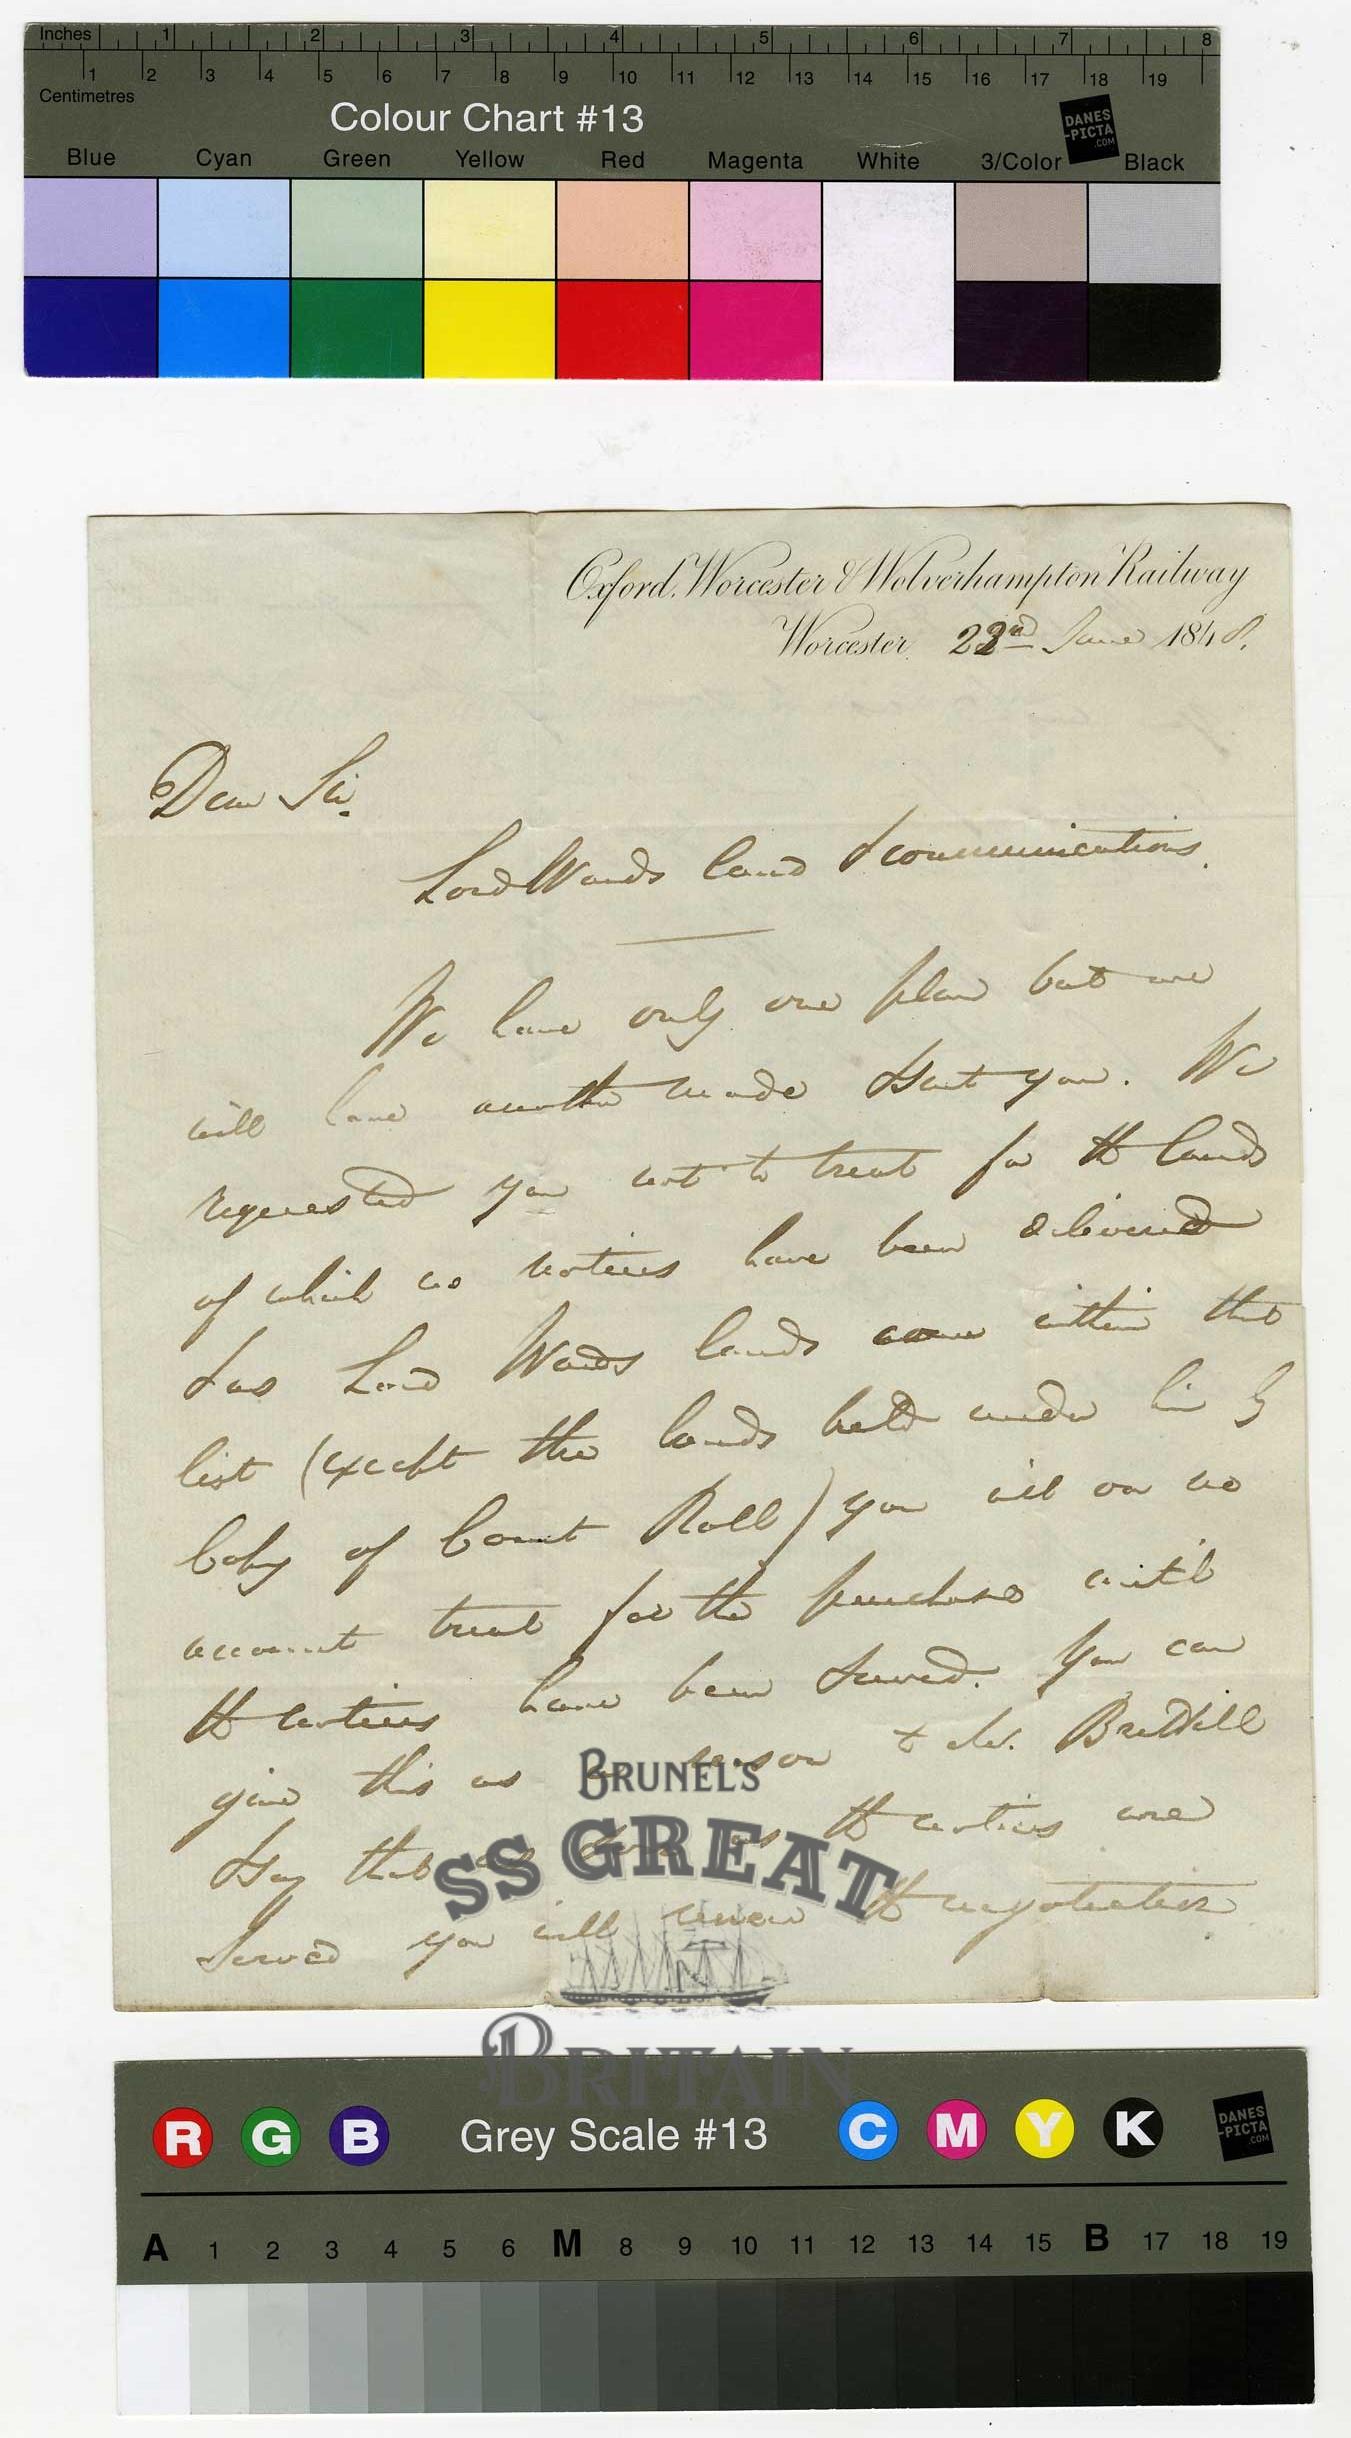 Inches 1 2 3 4 5 6 7 8
1 2 3 4 5 6 7 8 9 10 11 12 13 14 15 16 17 18 19
Centimetres
Colour Chart #13
DANES
-PICTA
.COM
Blue Cyan Green Yellow Red Magenta White 3/Color Black
Oxford, Worcester & Wolverhampton Railway
Worcester 22nd June 1848.
Dear Sir.
Lord Wards land & communications.
We have only one plan but we
will have another made & sent you. We
requested you not to treat for the lands
of which no notices have been delivered
& as Lord Wards lands come within that
list (except the lands held under him by
Copy of Court Roll) you will on no
account treat for the purchase until
the notices have been served. You can
give this as a reason to Mr. Brettell
& say that as soon as the notices are
served you will renew the negotiation
BRUNEL'S
SS GREAT
BRITAIN
R G B Grey Scale #13 C M Y K
DANES
-PICTA
.COM
A 1 2 3 4 5 6 M 8 9 10 11 12 13 14 15 B 17 18 19